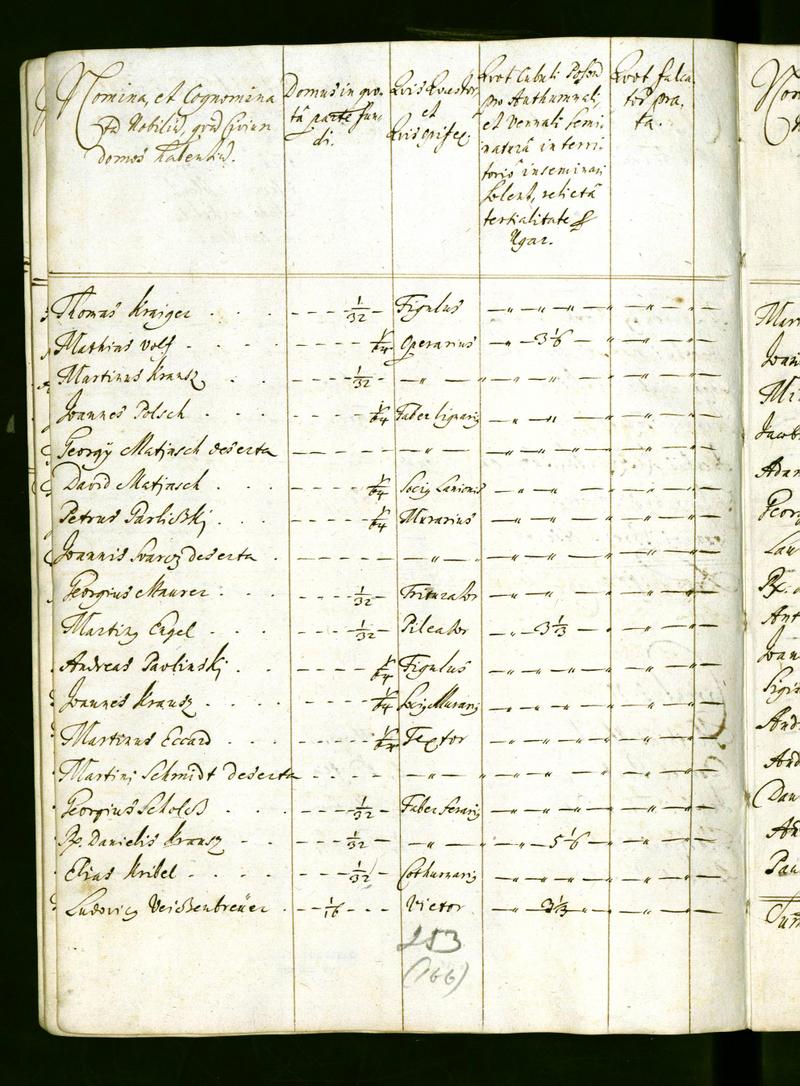 Nomina, et Cognomina
tã Nobiliũ, qvã Civium
domos habentiũ.
Domus in qvo-
tâ parte fun-
di.
Qvis Qvæstor
et
Qvis Opifex.
Qvot Cubuli Poson
pro Authumnali,
et Vernali Semi
naturâ in terri-
toriô inseminari
solent, relictâ
tertialitate
Ugar.
Qvot falca-
torũ pra-
ta.
Thomas Kraiger 1/32 Figulus
Mathias Volf 1/64 Operarius 3 1/6
Martinus Krausz 1/32
Joannes Polsch 1/64 Faber lignariꝯ
Georgÿ Matjasch deserta
David Matjasch 1/64 Sociꝯ Lanionis
Petrus Parlißkj 1/64 Murarius
Joannis Svarcz deserta
Georgius Maurer 1/32 Triturator
Martinꝯ Engel 1/32 Pileator 3 1/3
Andreas Pavlinskj 1/64 Figulus
Joannes Krausz 1/64 Sociꝯ Murariꝯ
Martinus Eccard 1/64 Textor
Martini Schmidt deserta
Georgius Scholcß 1/32 Faber serariꝯ
Rx. Danielis Krausz 1/32 5 1/6
Elias Kribel 1/32 Cothurnariꝯ
Ludovicꝯ Veißenbreüer 1/16 Vietor 3 1/3
253
(166)